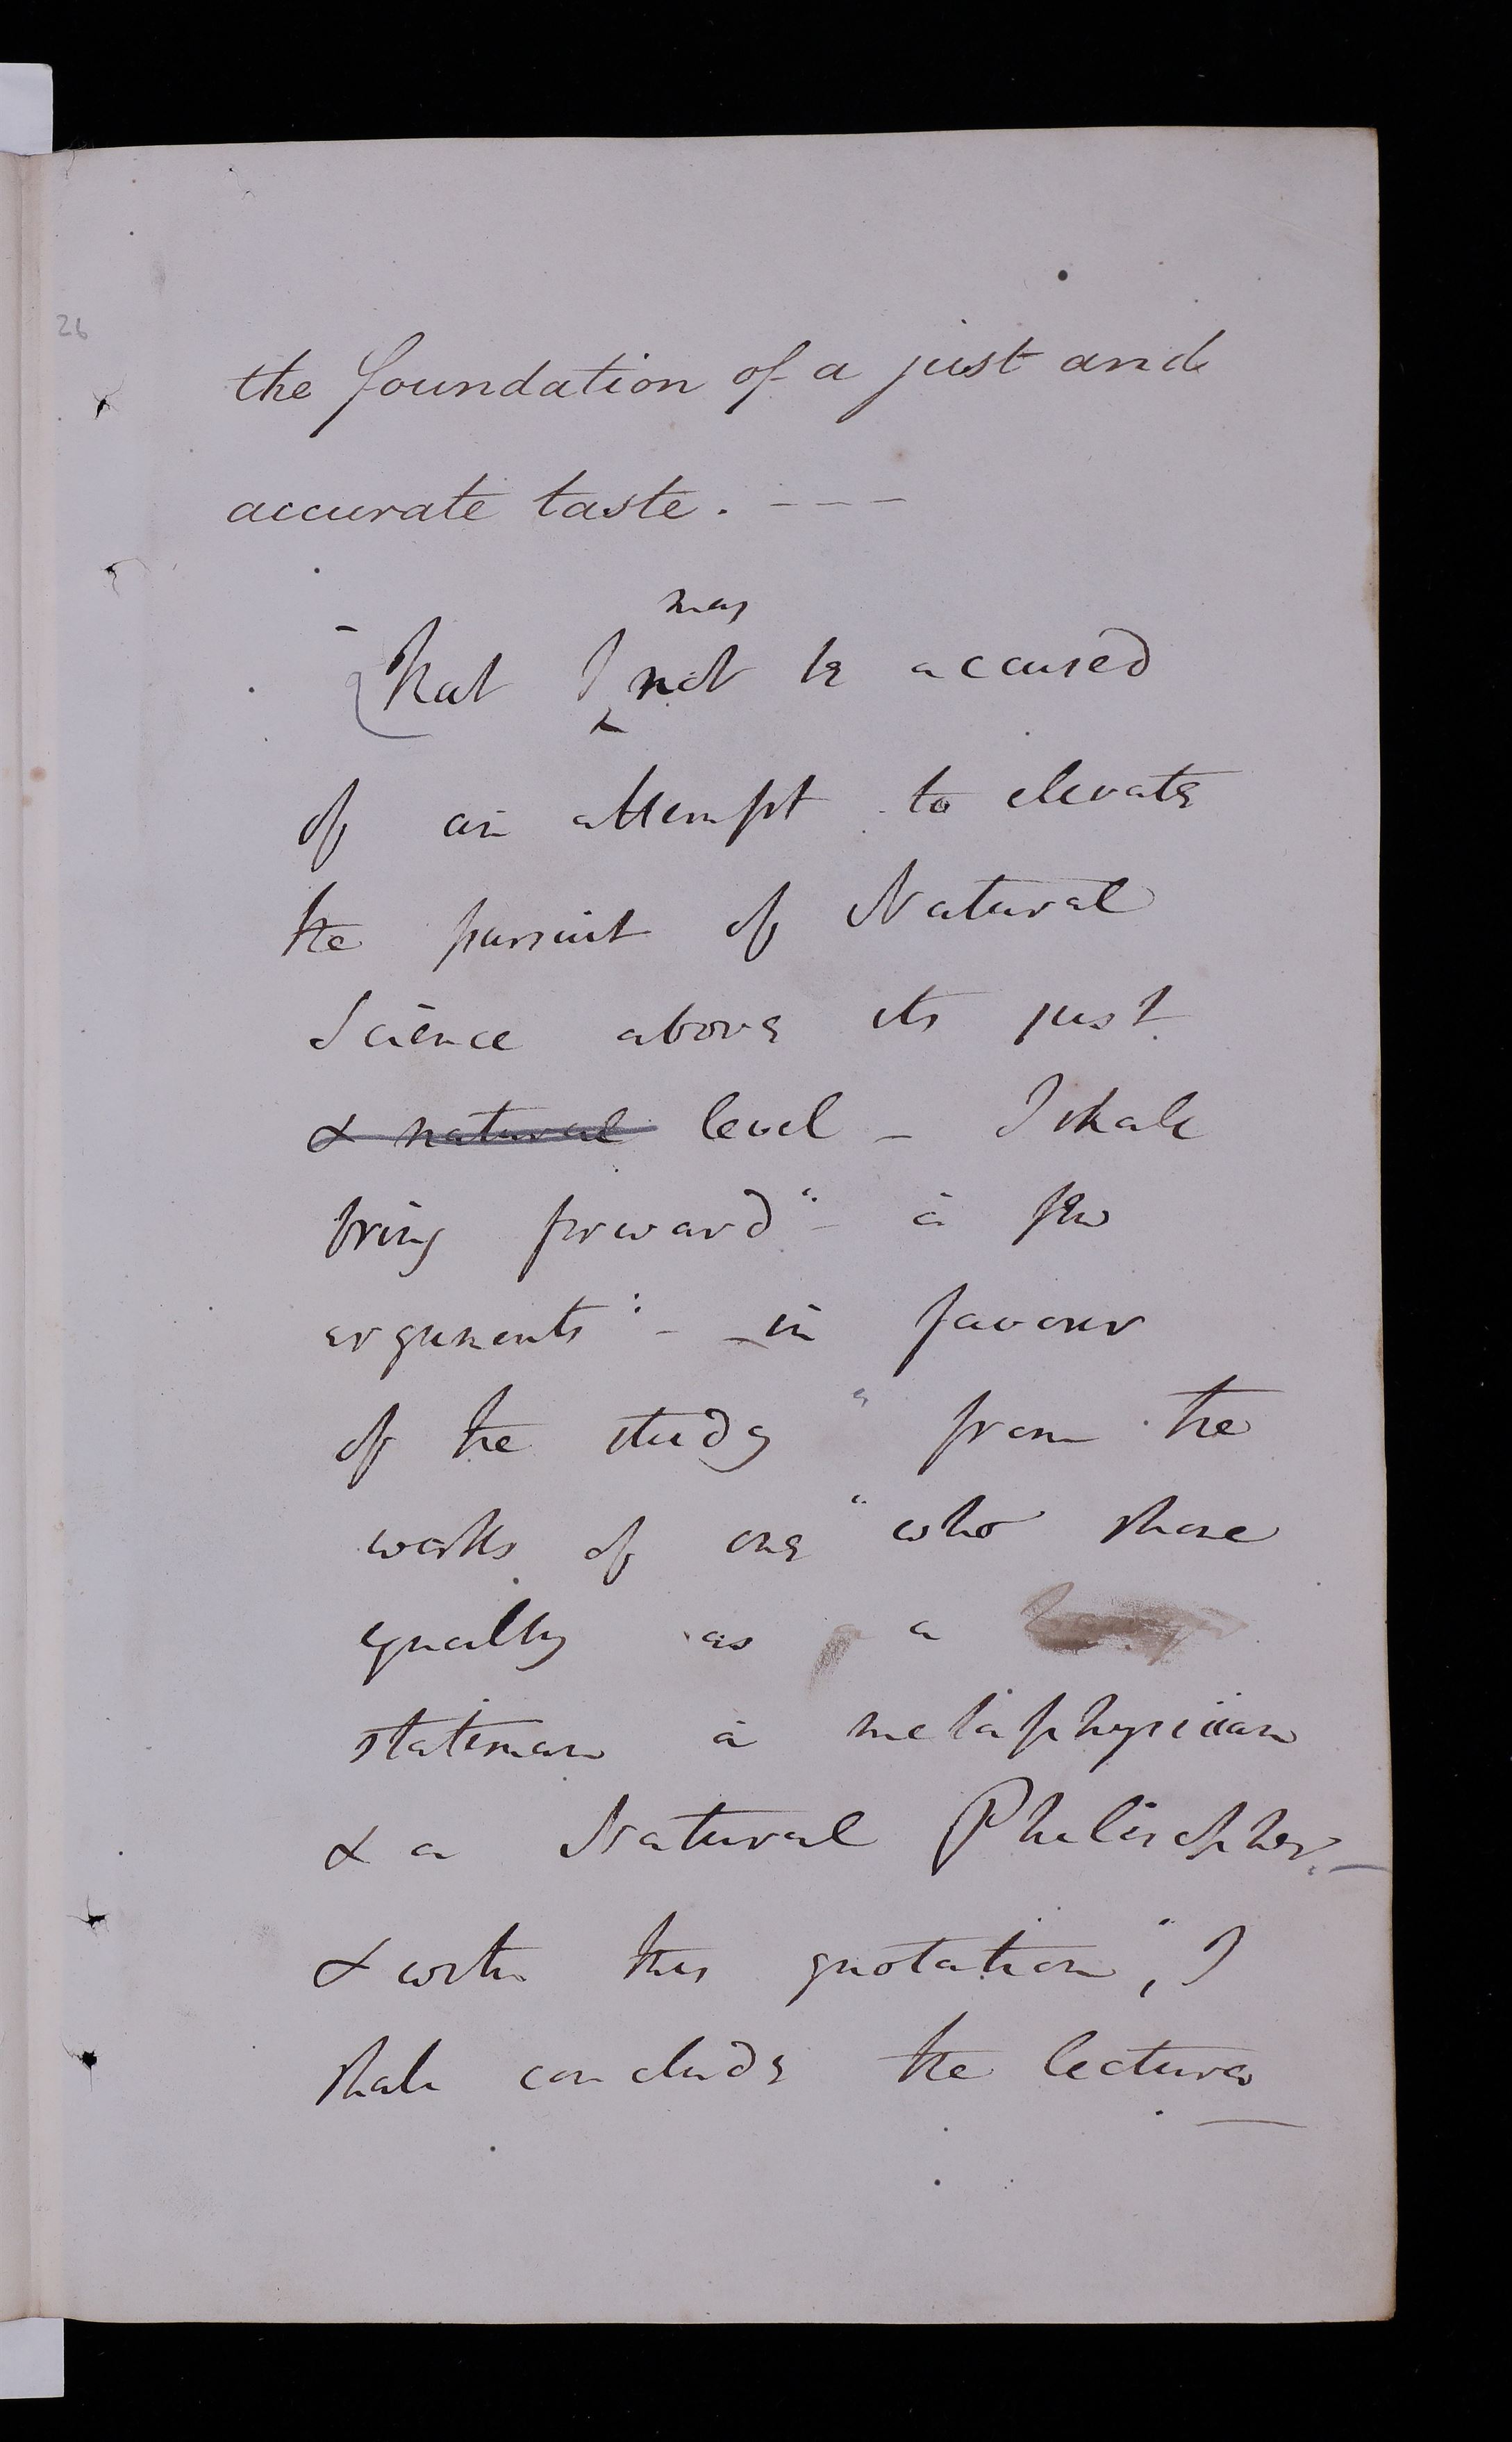 26
the foundation of a just and
accurate taste. - - -
may
That I not be accused
of an attempt to elevate
the pursuit of Natural
Science above its just
& natural level - I shall
bring forward "- a few
arguments "- in favour
of the study " from the
works of one " who shone
equally as a
statesman a metaphysician
& a Natural Philosopher. -
& with this quotation ", I
shall conclude the lecture